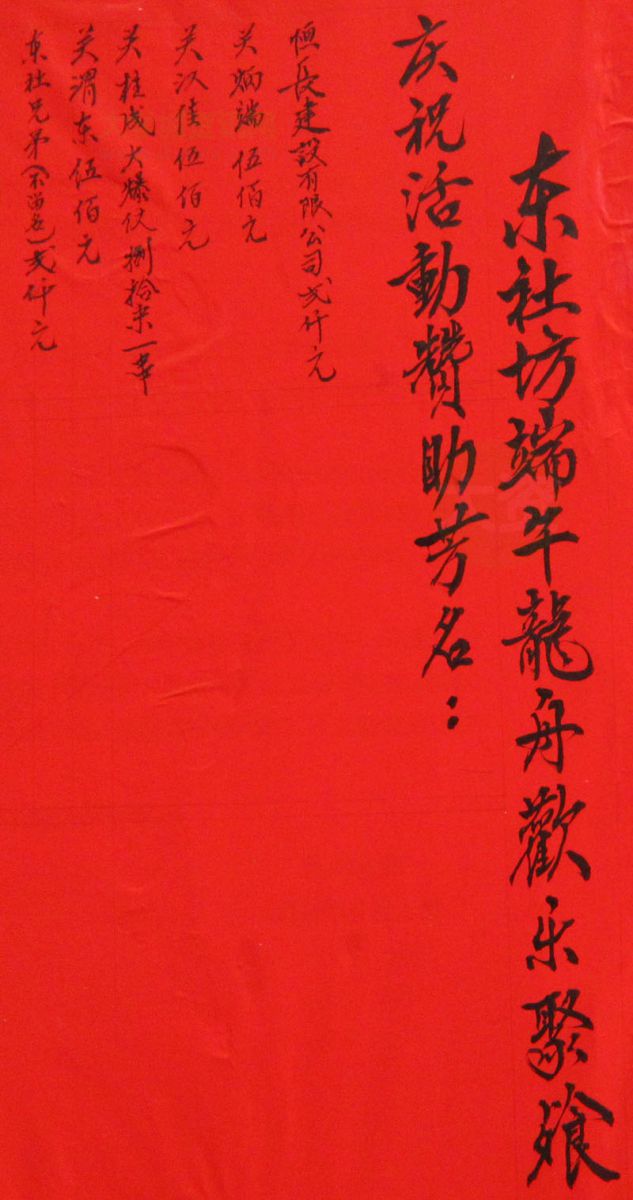 东社坊端午龍舟歡乐聚飨
庆祝活動贊助芳名：
恒長建設有限公司弍仟元
关炳端伍佰元
关汉佳伍佰元
关柱成大爆仗捌拾末一串
关渭东伍佰元
东社兄弟(不留名)弍仟元